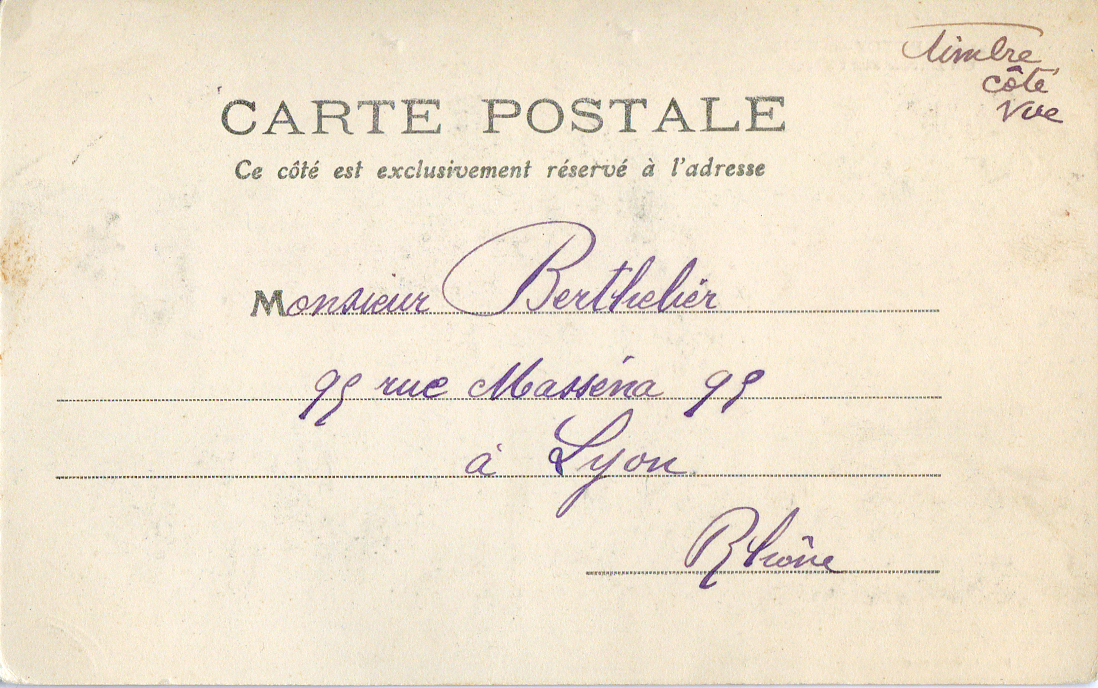 Timbre
côté
vue
CARTE POSTALE
Ce côté est exclusivement réservé à l'adresse
Monsieur Berthelier
99 rue Masséna 99
à Lyon
Rhône